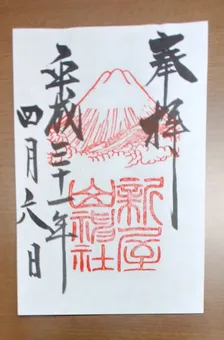 奉拝
新屋
山神社
平成三十一年
四月六日